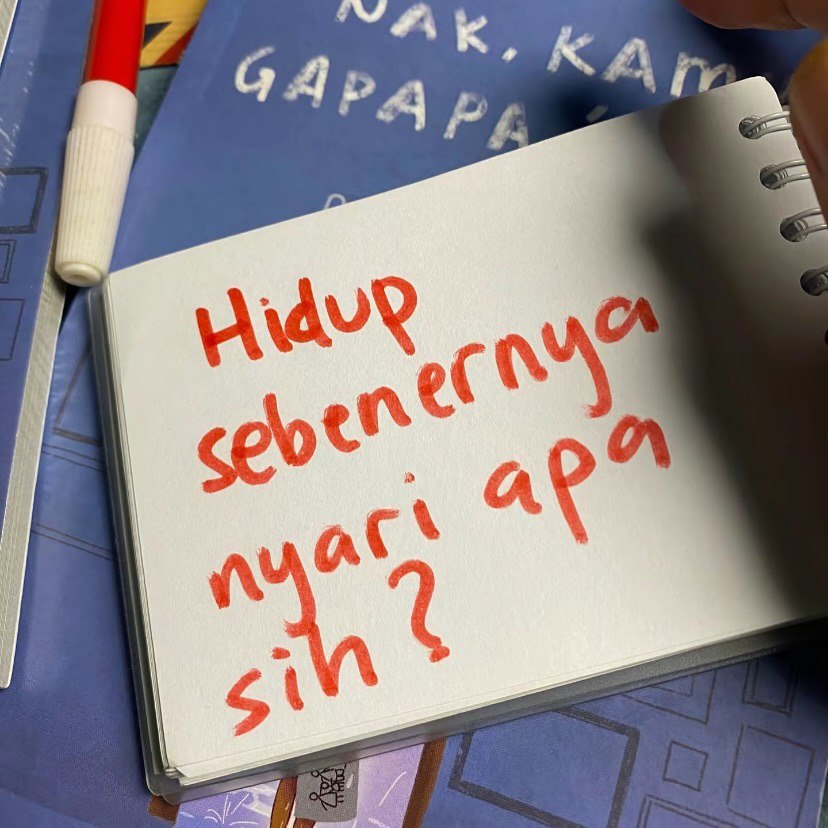 NAK, KAMU
GAPAPA
Hidup
sebenernya
nyari apa
sih?